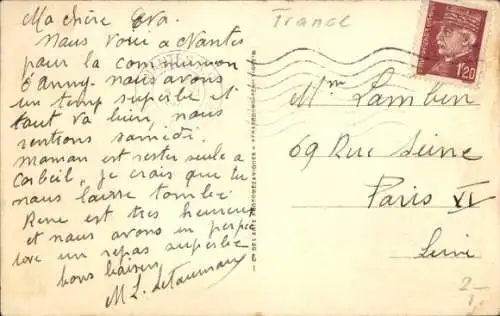 Ma chère Eva.
Nous voici a Nantes
pour la communion
d'Anny. nous avons
un temps superbe et
tout va bien, nous
rentrons samedi.
maman est restée seule a
Corbeil, je crois que tu
nous laisse tomber
Rene est tres heureux
et nous avons en
un repas superbe
bons baisers
M L
France
1'20
Lambert
69 Rue Seine
Paris VI
Seine
2-